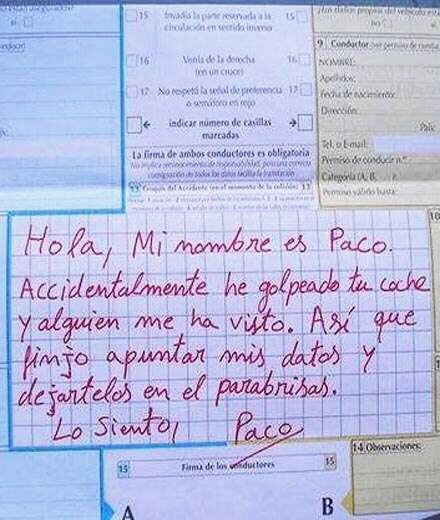 15 Invadía la parte reservada a la 15
circulación en sentido inverso
16 Venía de la derecha 16
(en un cruce)
17 No respetó la señal de preferencia 17
o semáforo en rojo
indicar número de casillas
marcadas
La firma de ambos conductores es obligatoria
9 Conductor
NOMBRE:
Apellidos:
Fecha de nacimiento:
Dirección:
País:
Tel. o E-mail:
Permiso de conducir n.º
Categoría (A, B,
Permiso válido hasta:
13 Croquis del Accidente (en el momento de la colisión) 13
10
Hola, Mi nombre es Paco.
Accidentalmente he golpeado tu coche
y alguien me ha visto. Así que
finjo apuntar mis datos y
dejartelos en el parabrisas.
Lo Siento, Paco
14 Observaciones:
15 Firma de los conductores 15
A B